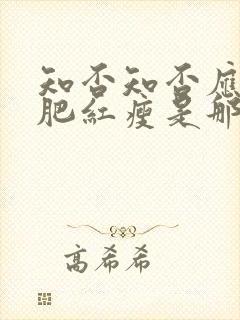 知否知否應
肥紅瘦是那
高希希